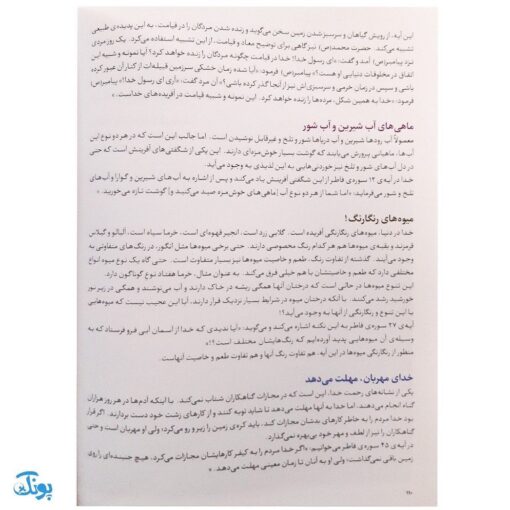 این آیه، از رویش گیاهان و سرسبز شدن زمین سخن می‌گوید و زنده شدن مردگان را در قیامت، به این پدیده‌ی طبیعی
تشبیه می‌کند. حضرت محمد(ص) نیز گاهی برای توضیح معاد و قیامت، از این تشبیه استفاده می‌کرد. یک روز مردی
نزد پیامبر(ص) آمد و گفت: «ای رسول خدا!! خدا در قیامت چگونه مردگان را زنده خواهد کرد؟ آیا نمونه و شبیه این
اتفاق در مخلوقات دنیایی او هست؟» پیامبر(ص) فرمود: «آیا شده زمان خشکی سرزمین قبیله‌ات از کنار آن عبور کرده
باشی و سپس در زمان خرمی و سرسبزی‌اش نیز از آنجا گذر کرده باشی؟» آن مرد گفت: «آری ای رسول خدا!» پیامبر(ص)
فرمود: «خدا به همین شکل، مرده‌ها را زنده خواهد کرد. این نمونه و شبیه قیامت در آفریده‌های خداست.»
ماهی‌های آب شیرین و آب شور
معمولاً آب رودها شیرین و آب دریاها شور و تلخ و غیرقابل نوشیدن است. اما جالب این است که در هر دو نوع این
آب‌ها، ماهیانی پرورش می‌یابند که گوشت بسیار خوش‌مزه‌ای دارند. این یکی از شگفتی‌های آفرینش است که حتی
در دل آب‌های شور و تلخ نیز خوردنی‌هایی به این لذیذی به وجود می‌آید.
خدا در آیه‌ی ۱۲ سوره‌ی فاطر از این شگفتی آفرینش یاد می‌کند و پس از اشاره به آب‌های شیرین و گوارا و آب‌های
تلخ و شور می‌فرماید: «اما شما از هر دو نوع آب [ماهی‌های خوش‌مزه صید می‌کنید و] گوشت تازه می‌خورید.»
میوه‌های رنگارنگ!
خدا در دنیا، میوه‌های رنگارنگی آفریده است. گلابی زرد است، انجیر قهوه‌ای است، خرما سیاه است، آلبالو و گیلاس
قرمزند و بقیه‌ی میوه‌ها هم هر کدام رنگ مخصوصی دارند. حتی برخی میوه‌ها مثل انگور، در رنگ‌های متفاوتی به
وجود می‌آیند. گذشته از تفاوت رنگ، طعم و خاصیت میوه‌ها نیز بسیار متفاوت است. حتی گاه یک نوع میوه انواع
مختلفی دارد که طعم و خاصیتشان با هم خیلی فرق می‌کند. به عنوان مثال، خرما هفتاد نوع گوناگون دارد.
این تنوع میوه‌ها در حالی است که درختان آنها همگی ریشه در خاک دارند و آب می‌نوشند و همگی در زیر نور
خورشید رشد می‌کنند. با آنکه درختان میوه در شرایط بسیار نزدیک قرار دارند، آیا این عجیب نیست که میوه‌هایی
با این تنوع و رنگارنگی از آنها به وجود می‌آید؟!
آیه‌ی ۲۷ سوره‌ی فاطر به این نکته اشاره می‌کند و می‌گوید: «آیا ندیدی که خدا از آسمان آبی فرو فرستاد که به
وسیله‌ی آن میوه‌هایی پدید آورده‌ایم که رنگ‌هایشان مختلف است؟!»
منظور از رنگارنگی میوه‌ها در این آیه، هم تفاوت رنگ آنها و هم تفاوت طعم و خاصیت آنهاست.
خدای مهربان، مهلت می‌دهد
یکی از نشانه‌های رحمت خدا، این است که در مجازات گناهکاران شتاب نمی‌کند. با اینکه آدم‌ها در هر روز هزاران
گناه انجام می‌دهند، اما خدا به آنها مهلت می‌دهد تا شاید توبه کنند و از کارهای زشت خود دست بردارند. اگر قرار
بود خدا مردم را به خاطر کارهای بدشان مجازات کند، باید کره‌ی زمین را زیر و رو می‌کرد؛ ولی او مهربان است و حتی
گناهکاران را نیز از لطف و مهر خود بی‌بهره نمی‌گذارد
در آیه‌ی ۴۵ سوره‌ی فاطر می‌خوانیم: «اگر خدا مردم را به کیفر کارهایشان مجازات می‌کرد، هیچ جنبنده‌ای را روی
زمین باقی نمی‌گذاشت؛ ولی او به آنان تا زمان معینی مهلت می‌دهد.»
پونک